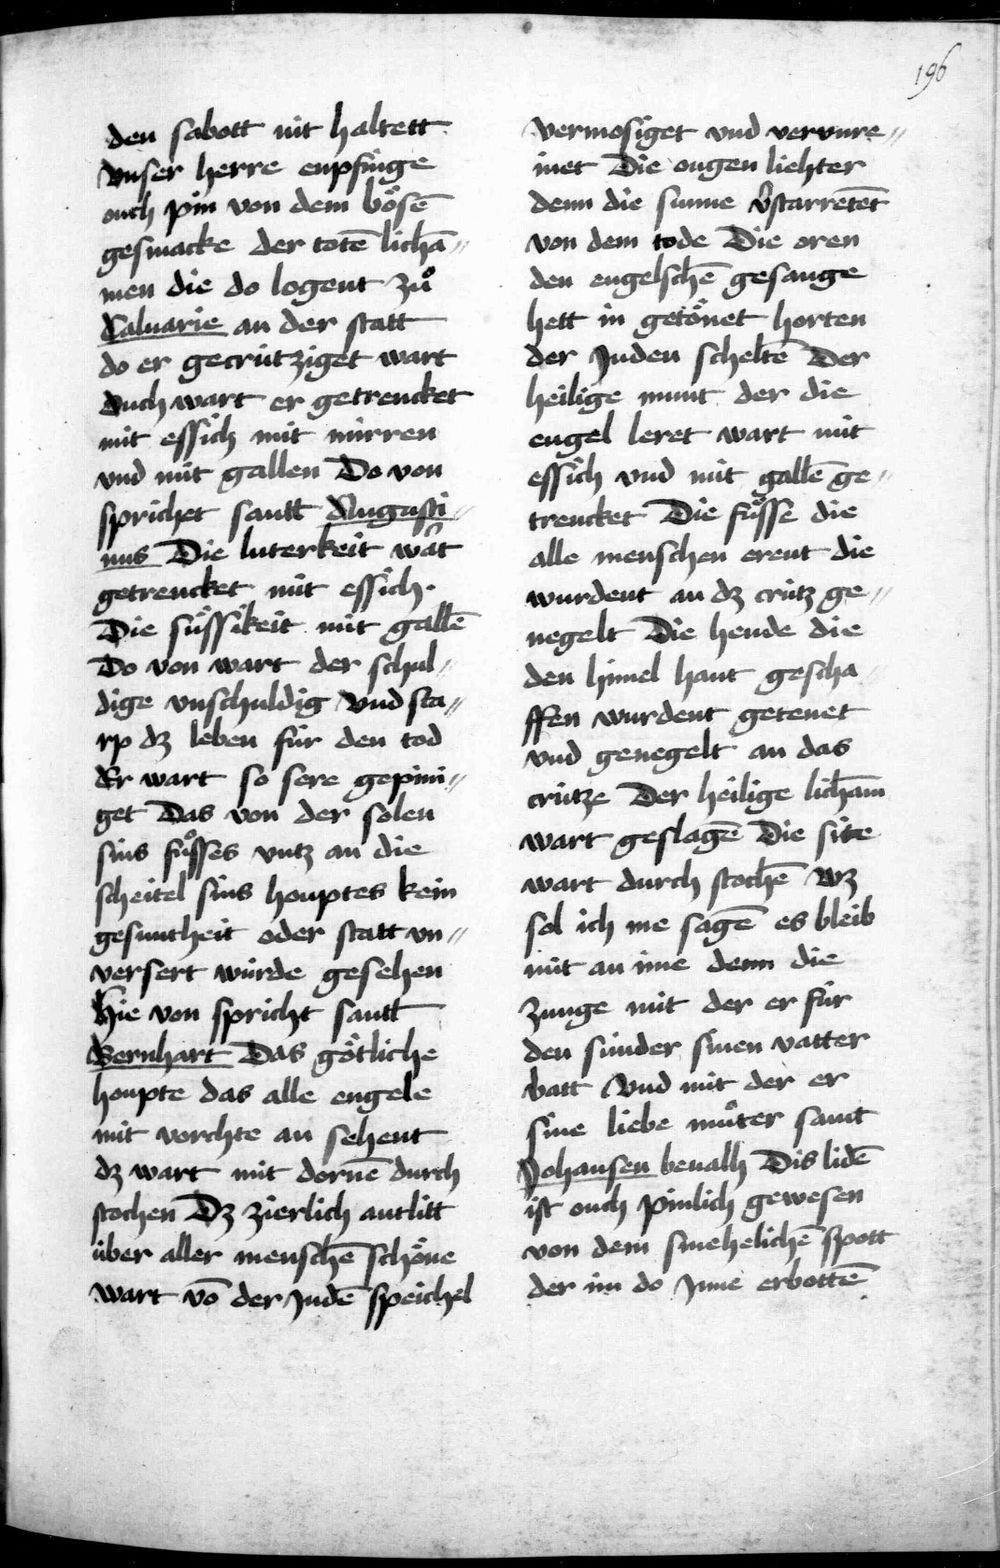 196
den sabott nit haltett
Vnser herre enpfinge
ouch pin von dem bösē
gesmacke der totē lichā⸗
men die do logent zuͦ
Caluarie an der statt
do er gecrútziget wart
Ouch wart er getrencket
mit essich mit mirren
vnd mit gallen Do von
sprichet santt Augusti⸗
nus Die luterkeit wart
getrencket mit essich.
Die süssikeit mit gallē
Do von wart der schul⸗
dige vnschuldig Vnd sta⸗
rp dz leben für den tod
Er wart so sere gepini⸗
get Das von der solen
sins fuͦsses vntz an die
scheitel sins houptes kein
gesuntheit oder statt vn⸗
versert würde gesehen
Hie von spricht santt
Bernhart Das götliche
houpte das alle engele
mit vorchte an sehent
dz wart mit dornē durch
stochen Dz zierlich antlitt
über aller menschē schöne
wart vō der Judē speichel
vermosiget vnd vervnre⸗
inet Die ougen liehter
denn die sunne v̉starretēt
von dem tode Die oren
den engelschē gesange
hett in getönet horten
der Juden scheltē Der
heilige munt der die
engel leret wart mit
essich vnd mit gallē ge⸗
trencket Die fuͦsse die
alle menschen erent die
wurdent an dz crútz ge⸗
negelt Die hende die
den himel hant gescha⸗
ffen wurdent getenet
vnd genegelt an das
crútze Der heilige lichām
wart geslagē Die site
wart durch stochē Wz
sol ich me sagē es bleib
nút an ime denn die
zunge mit der er für
den sünder sinen vatter
batt Vnd mit der er
sine liebe muͦter sant
Johansen beualh Dis lidē
ist ouch pinlich gewesen
von dem smehelichē spott
der im do Jnne erbottē